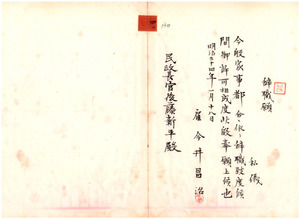 辭職願
私儀
今般家事都合ニ依リ辭職致度候
間御許可相成度此段奉願上候也
明治三十四年一月十八日
雇今井昌治
民政長官後藤新平殿